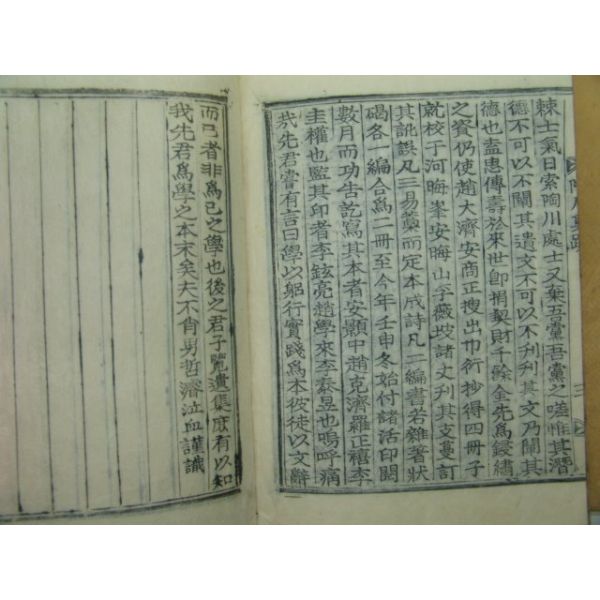 棘士氣日索陶川處士又棄吾黨吾黨之嗟惟其潛
德不可以不闡其遺文不可以不刋刋其文乃闡其
德也盍惠傳壽於來世卽捐契財千餘金先爲鋟繡
之資仍使趙大濟安商正搜出巾衍抄得四冊子
就校于河晦峯安晦山李薇坡諸丈刋其支蔓訂
其訛誤凡三易藁而定本成詩凡二編書若雜著狀
碣各一編合爲二冊至今年壬申冬始付諸活印閱
數月而功告訖寫其本者安顥中趙克濟羅正禧李
圭權也監其印者李鉉亮趙學來李泰昱也嗚呼痛
哉先君嘗有言曰學以躬行實踐爲本彼徒以文辭
而已者非爲己之學也後之君子覽遺集庶有以知
我先君爲學之本末矣夫不肖男哲濬泣血謹識
三